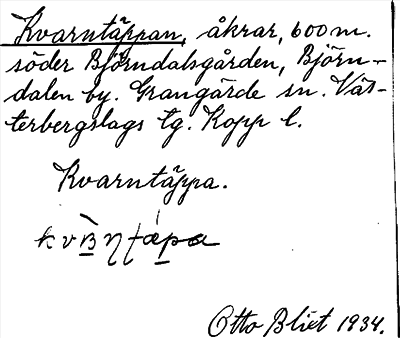 Kvarntäppan, åkrar, 600 m.
söder Björndalsgården, Björn-
dalen by. Grangärde sn. Väs-
terbergslags tg. Kopp l.
Kvarntäppa.
Otto Blixt 1934.